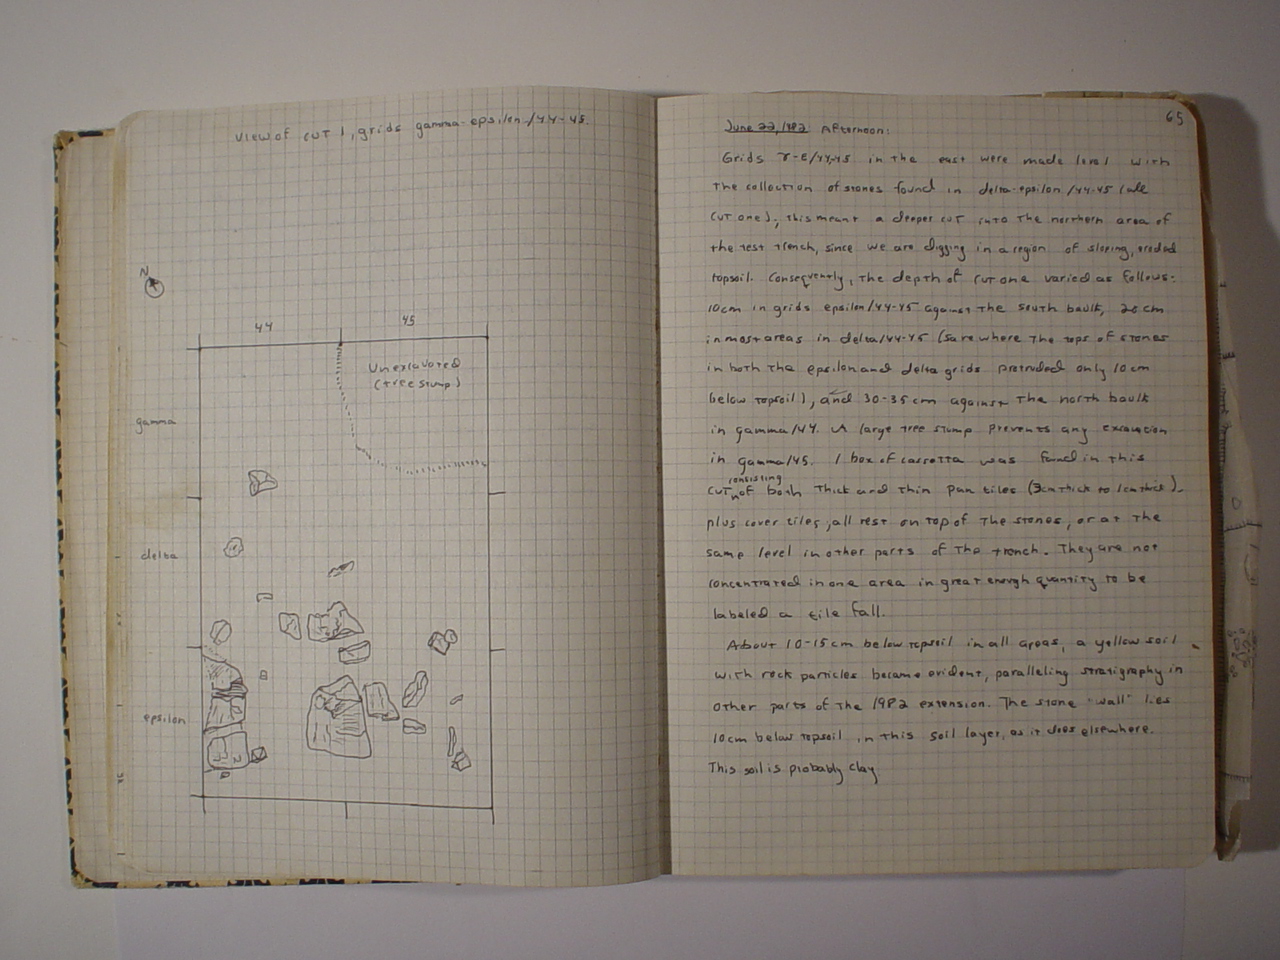 View of cut 1, grids gamma-epsilon/44-45.
N
44 45
Unexcavated
(tree stump)
gamma
delta
epsilon
65
June 22, 1982 Afternoon:
Grids γ-ε/44-45 in the east were made level with
the collection of stones found in delta-epsilon/44-45 (all
cut one); this meant a deeper cut into the northern area of
the test trench, since we are digging in a region of sloping, eroded
topsoil. Consequently, the depth of cut one varied as follows:
10cm in grids epsilon/44-45 against the south baulk, 20 cm
in most areas in delta/44-45 (save where the tops of stones
in both the epsilon and delta grids protruded only 10 cm
below topsoil), and 30-35 cm against the north baulk
in gamma/44. A large tree stump prevents any excavation
in gamma/45. 1 box of was found in this
cut consisting of both thick and thin pan tiles (3cm thick to 1cm thick)
plus cover tiles, all rest on top of the stones, or at the
same level in other parts of the trench. They are not
concentrated in one area in great enough quantity to be
labeled a tile fall.
About 10-15 cm below topsoil in all areas, a yellow soil
with rock particles became evident, paralleling stratigraphy in
other parts of the 1982 extension. The stone "wall" lies
10cm below topsoil in this soil layer, as it does elsewhere.
This soil is probably clay